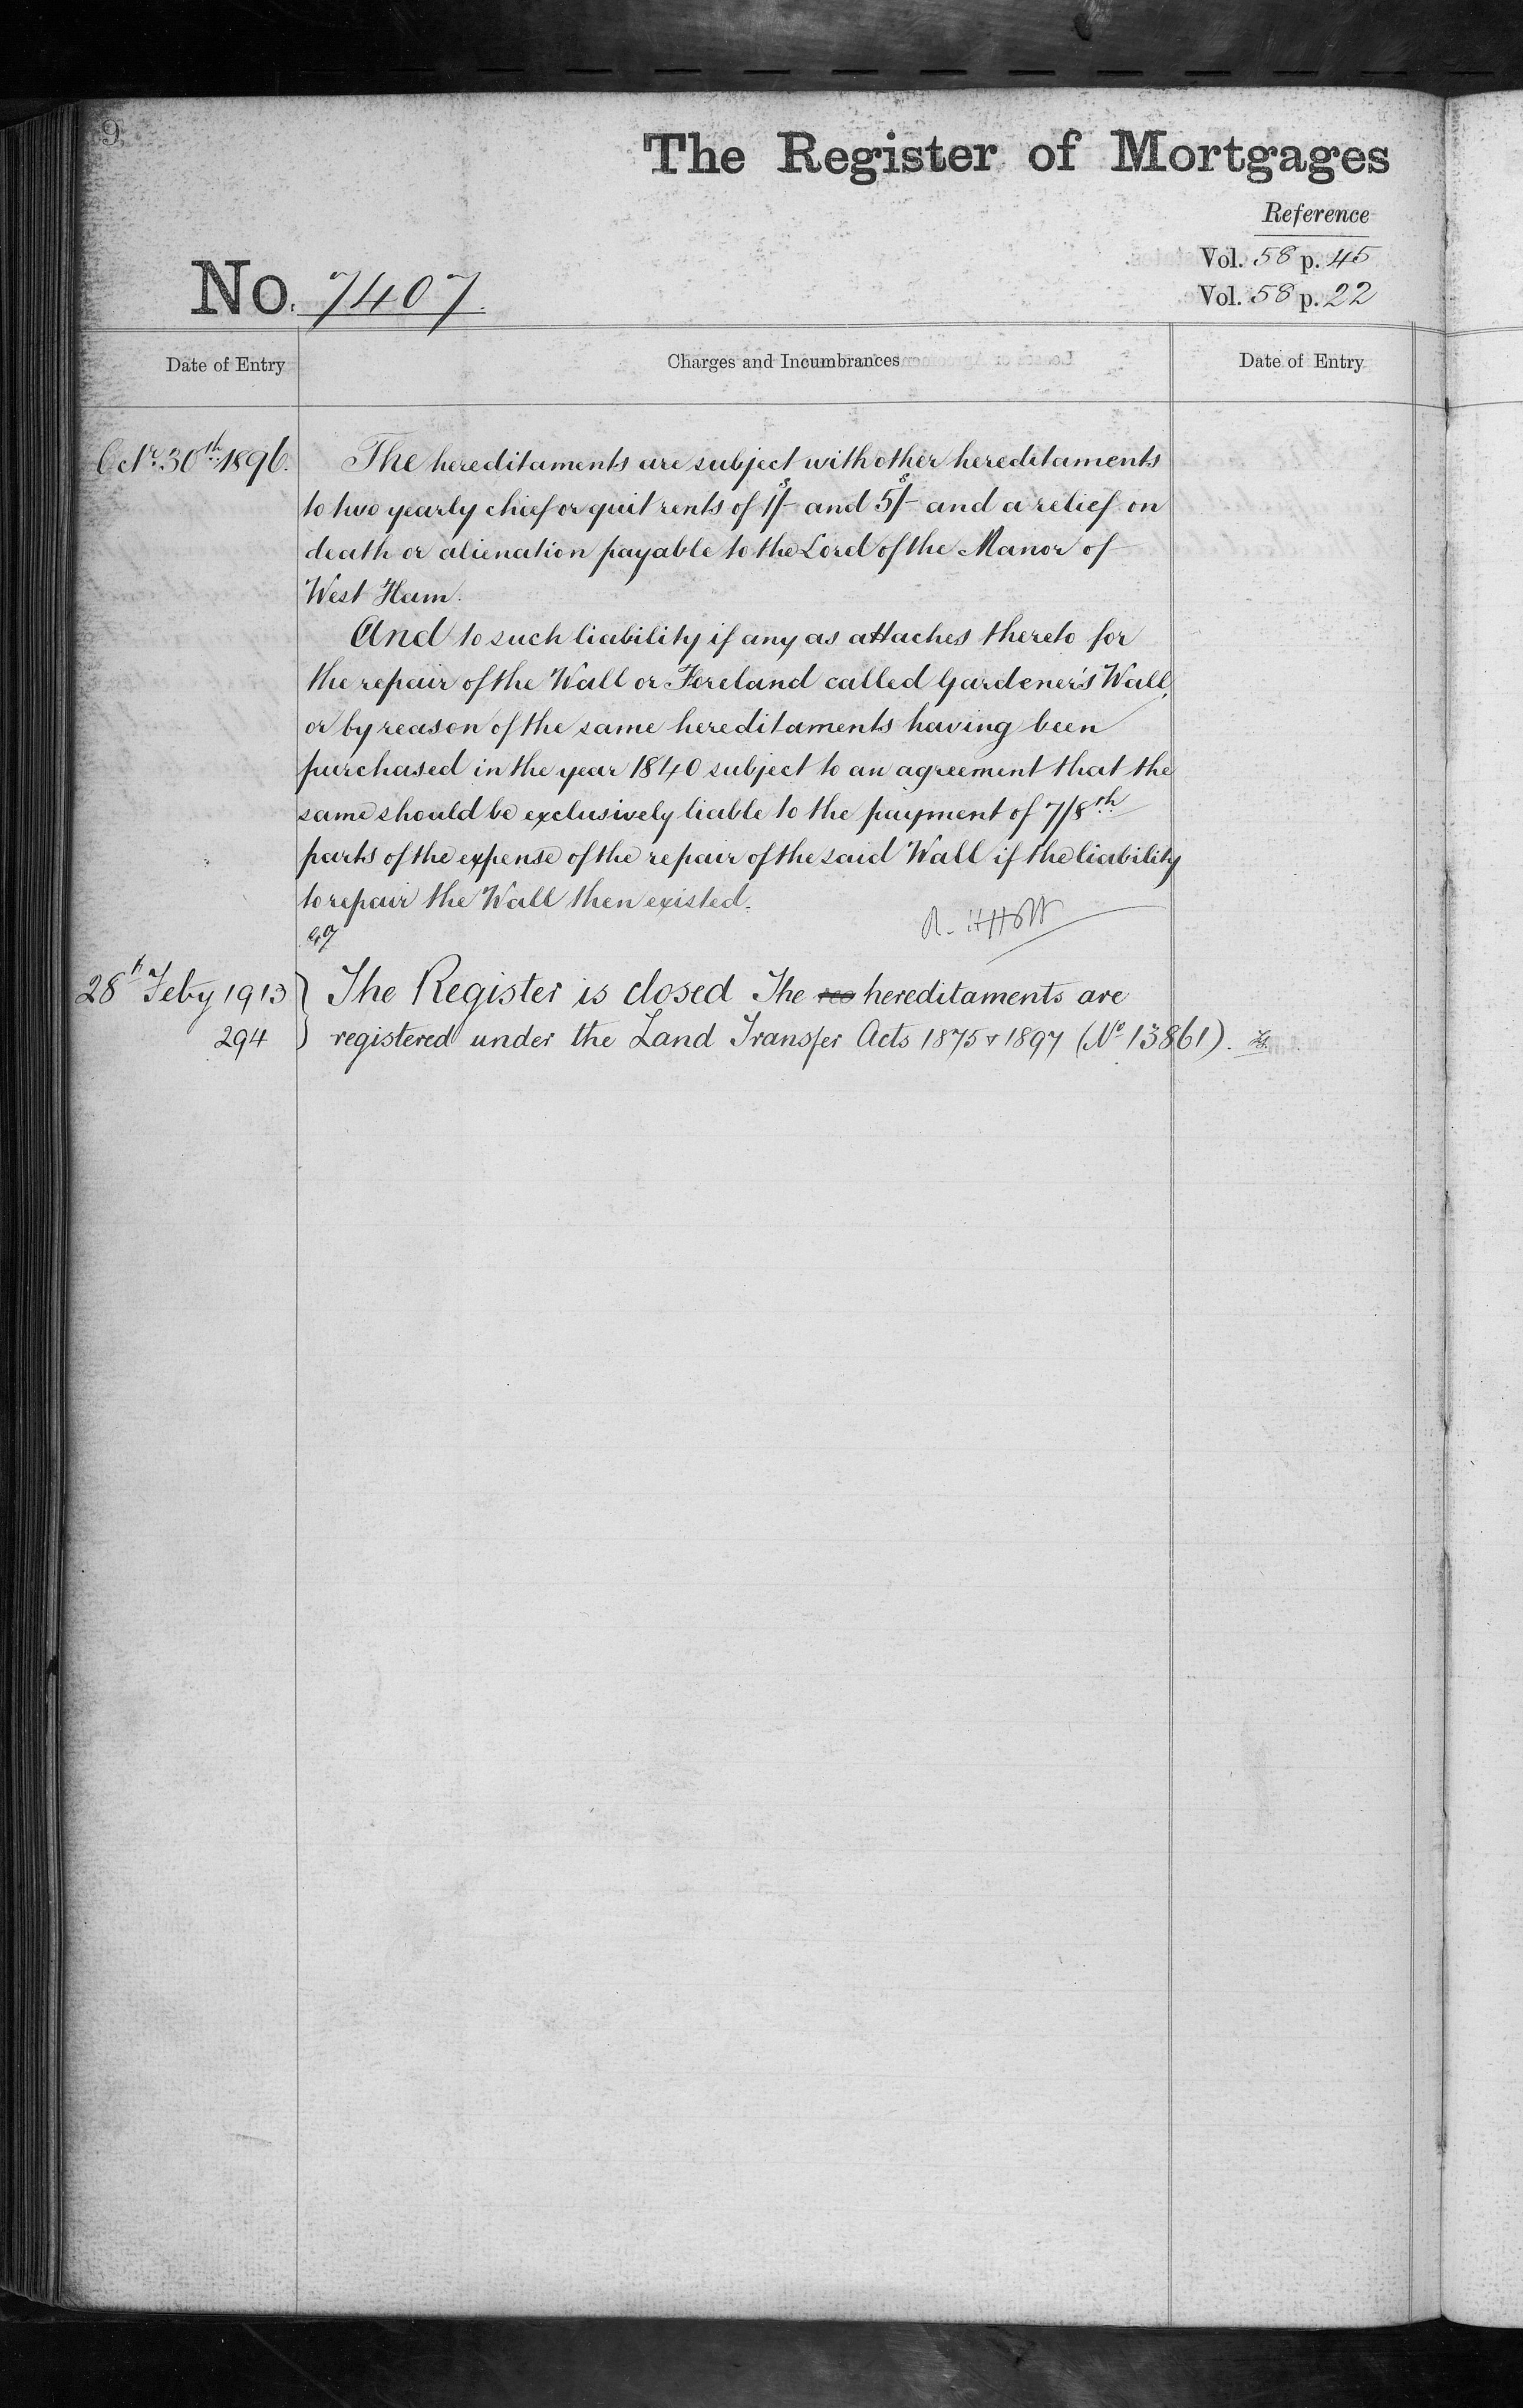 9
The Register of Mortgages
Reference
Vol. 58 p. 45
Vol. 58 p. 22
No. 7407.
Date of Entry
Charges and Incumbrances
Date of Entry
Octr. 30th 1896.
The hereditaments are subject with other hereditaments
to two yearly chief or quit rents of 1s/- and 5s/- and a relief on
death or alienation payable to the Lord of the Manor of
West Ham.
And to such liability if any as attaches thereto for
the repair of the Wall or Foreland called Gardener's Wall,
or by reason of the same hereditaments having been
purchased in the year 1840 subject to an agreement that the
same should be exclusively liable to the payment of 7/8th
parts of the expense of the repair of the said Wall if the liability
to repair the Wall then existed.
28th Feby 1913
The Register is closed The hereditaments are
294
registered under the Land Transfer Acts 1875 & 1897 (No 13861).